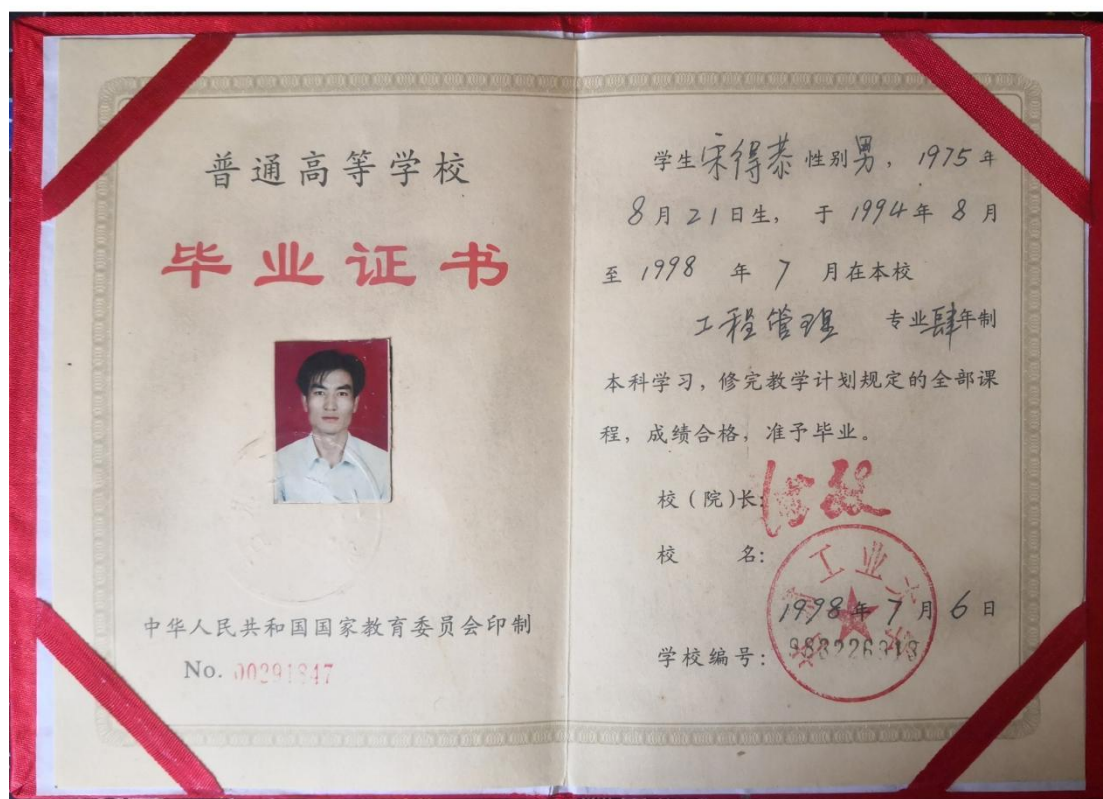 普通高等学校
毕业证书
中华人民共和国国家教育委员会印制
No. 00291847
学生宋得恭 性别男，1975年
8月21日生，于1994年8月
至1998年7月在本校
工程管理 专业肆年制
本科学习，修完教学计划规定的全部课
程，成绩合格，准予毕业。
校（院）长：
校 名：
工业大
1998年7月6日
学校编号：